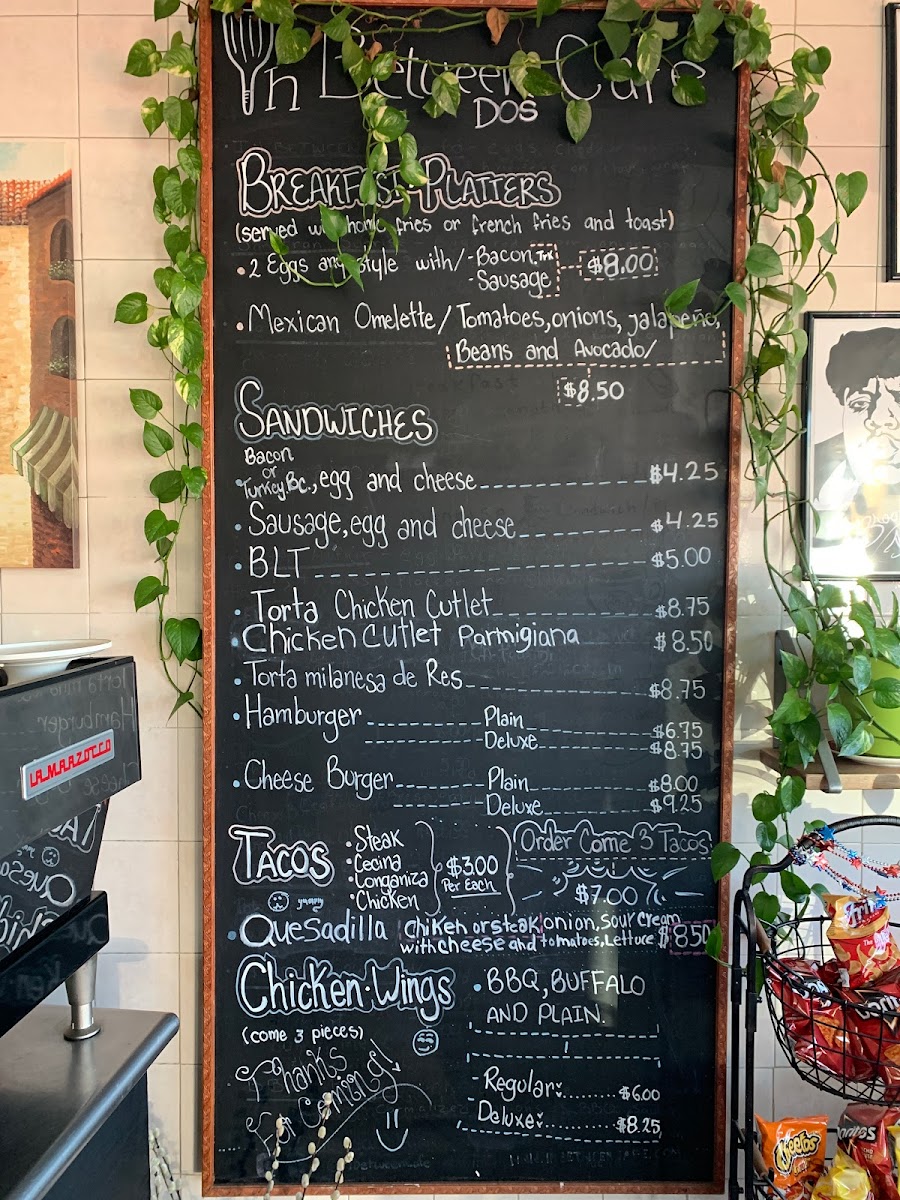 In Between Cafe
DOS
BREAKFAST PLATTERS
(served w/ home fries or french fries and toast)
• 2 Eggs any style with/ - Bacon, Trk $8.00
- Sausage
• Mexican Omelette / Tomatoes, onions, jalapeño,
Beans and Avocado/
$8.50
SANDWICHES
Bacon
or
• Turkey.Bc., egg and cheese $4.25
• Sausage, egg and cheese $4.25
• BLT $5.00
• Torta Chicken Cutlet $8.75
• Chicken Cutlet Parmigiana $8.50
• Torta milanesa de Res $8.75
• Hamburger Plain $6.75
Deluxe $8.75
• Cheese Burger Plain $8.00
Deluxe $9.25
TACOS
• Steak
• Cecina
• Longaniza
• Chicken
$3.00
Per Each
Order Come 3 Tacos
$7.00
yummy
• Quesadilla chiken or steak onion, sour cream
with cheese and tomatoes, Lettuce $8.50
Chicken • Wings
(come 3 pieces)
• BBQ, BUFFALO
AND PLAIN.
- Regular $6.00
- Deluxe $8.25
Thanks
For Coming!
LA MARZOCCO
Hamburger
Fritos
Doritos
Cheetos